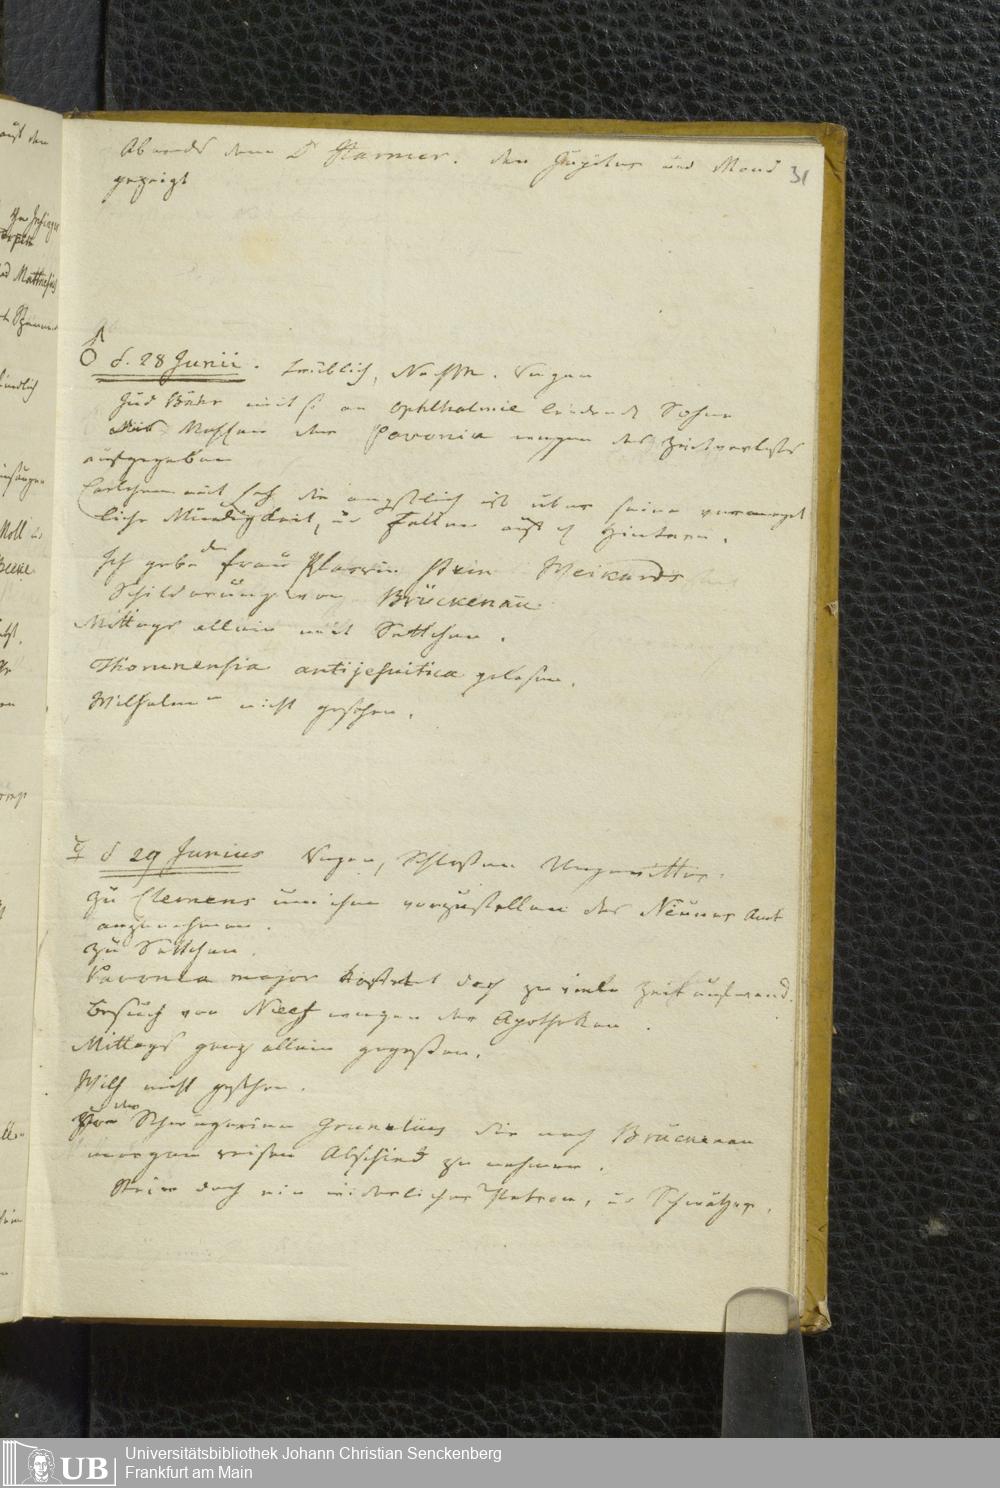 Abends dem Dr Stormer. den Jupiter und Mond
gezeigt
31
♂ d. 28 Junii. Trüblich, Regen
Jud Bär mit s. an Ophthalmie leidende Sohn
der Pavonia wegen des Zeitverlusts
aufgegeben
die ängstlich ist über seine vermeynt
liche Müdigkeit, u Fallen auf d Hintern.
Ich gebe der Frau Pfarrin Stein Weikards
Schilderung von Brückenau
Mittags allein mit Settchen.
Thorunensia antijesuitica gelesen.
Wilhelm nicht gesehen.
☿ d 29 Junius Regen, Schloßen Ungewitter.
Zu Clemens um ihm vorzustellen das Neuner Amt
anzunehmen.
Zu Settchen.
Pavonia major kostet doch zu viele Zeitaufwand.
Besuch von Neef wegen der Apotheken.
Mittags ganz allein gegessen.
Wilh nicht gesehen.
der Schwägerinn Grunelius die nach Brückenau
morgen reisen Abschied zu nehmen.
Stein doch ein widerlicher Patron, u Schwätzer.
UB
Universitätsbibliothek Johann Christian Senckenberg
Frankfurt am Main